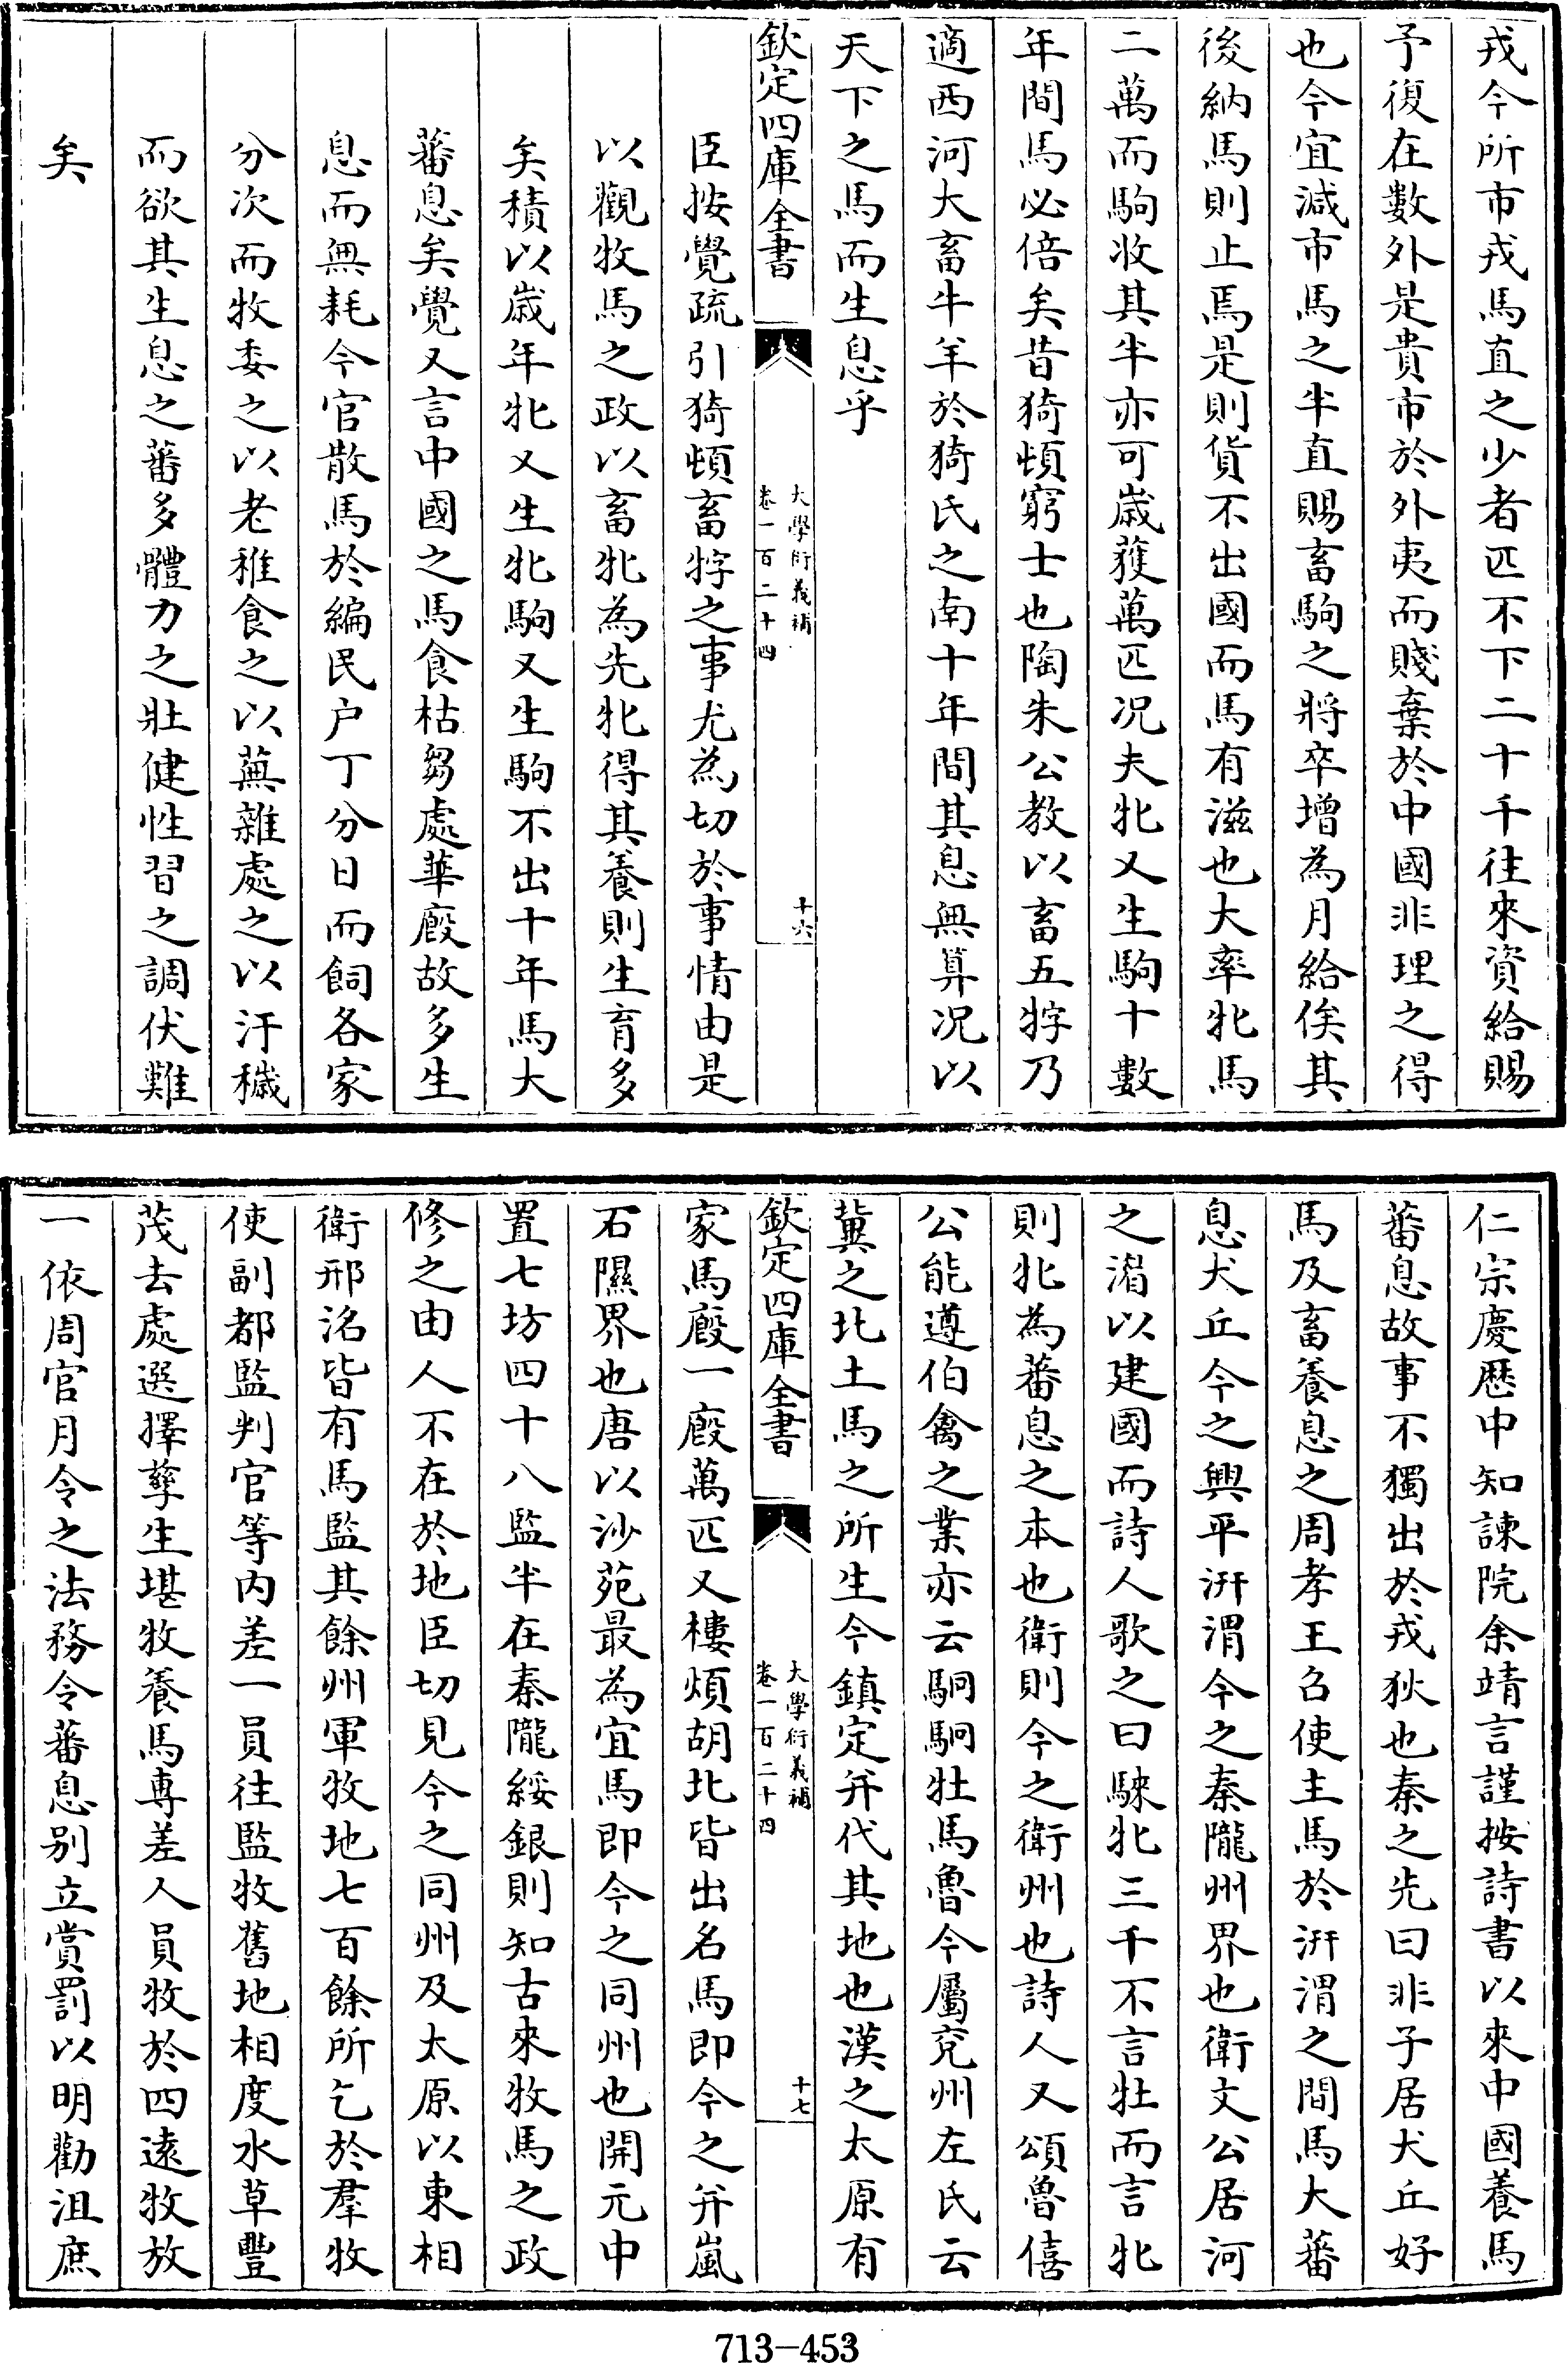 戎今所市戎馬直之少者匹不下二十千往來資給賜
予復在數外是貴市於外夷而賤棄於中國非理之得
也今宜減市馬之半直賜畜駒之將卒增為月給俟其
後納馬則止焉是則貨不出國而馬有滋也大率牝馬
二萬而駒收其半亦可歲獲萬匹况夫牝又生駒十數
年間馬必倍矣昔猗頓窮士也陶朱公教以畜五牸乃
適西河大畜牛羊於猗氏之南十年間其息無算况以
天下之馬而生息乎
欽定四庫全書
大學衍義補
卷一百二十四
十六
臣按覺疏引猗頓畜牸之事尤為切於事情由是
以觀牧馬之政以畜牝為先牝得其養則生育多
矣積以歲年牝又生牝駒又生駒不出十年馬大
蕃息矣覺又言中國之馬食枯芻處華廐故多生
息而無耗今官散馬於編民户丁分日而飼各家
分次而牧委之以老稚食之以蕪雜處之以汙穢
而欲其生息之蕃多體力之壯健性習之調伏難
矣
仁宗慶歷中知諫院余靖言謹按詩書以來中國養馬
蕃息故事不獨出於戎狄也秦之先曰非子居犬丘好
馬及畜養息之周孝王召使主馬於汧渭之間馬大蕃
息犬丘今之興平汧渭今之秦隴州界也衛文公居河
之湄以建國而詩人歌之曰騋牝三千不言牡而言牝
則牝為蕃息之本也衛則今之衛州也詩人又頌魯僖
公能遵伯禽之業亦云駉駉牡馬魯今屬兖州左氏云
冀之北土馬之所生今鎮定并代其地也漢之太原有
欽定四庫全書
大學衍義補
卷一百二十四
十七
家馬廐一廐萬匹又樓煩胡北皆出名馬即今之并嵐
石隰界也唐以沙苑最為宜馬即今之同州也開元中
置七坊四十八監半在秦隴綏銀則知古來牧馬之政
修之由人不在於地臣切見今之同州及太原以東相
衛邢洺皆有馬監其餘州軍牧地七百餘所乞於羣牧
使副都監判官等内差一員往監牧舊地相度水草豐
茂去處選擇孳生堪牧養馬專差人員牧於四遠牧放
一依周官月令之法務令蕃息别立賞罰以明勸沮庶
713-453